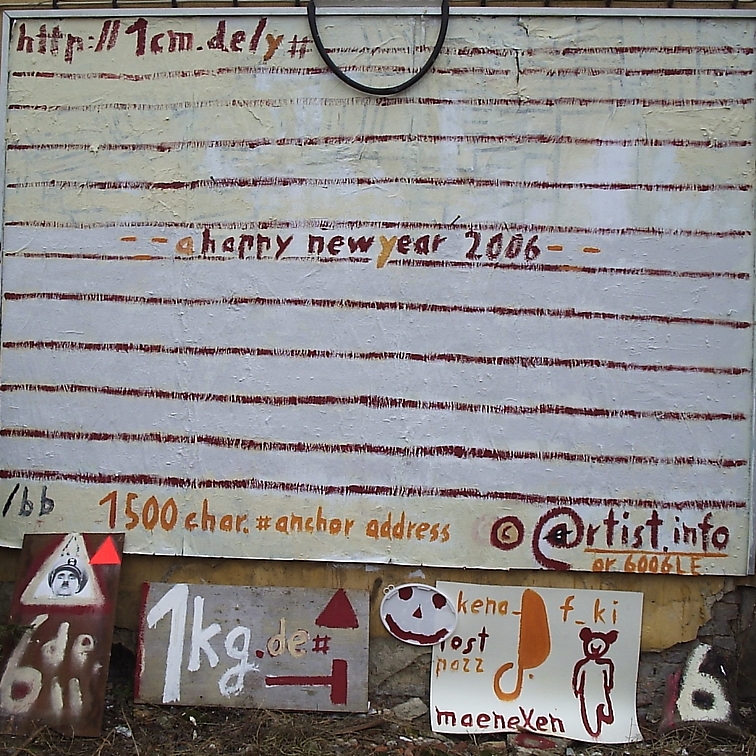 http://1cm.de/y#
--a happy newyear 2006--
/bb
1500 char. #anchor address
© @rtist.info
or 6006LE
1kg.de#
kena_ f_ki
lost
pozz
maeneXen
6
de
6